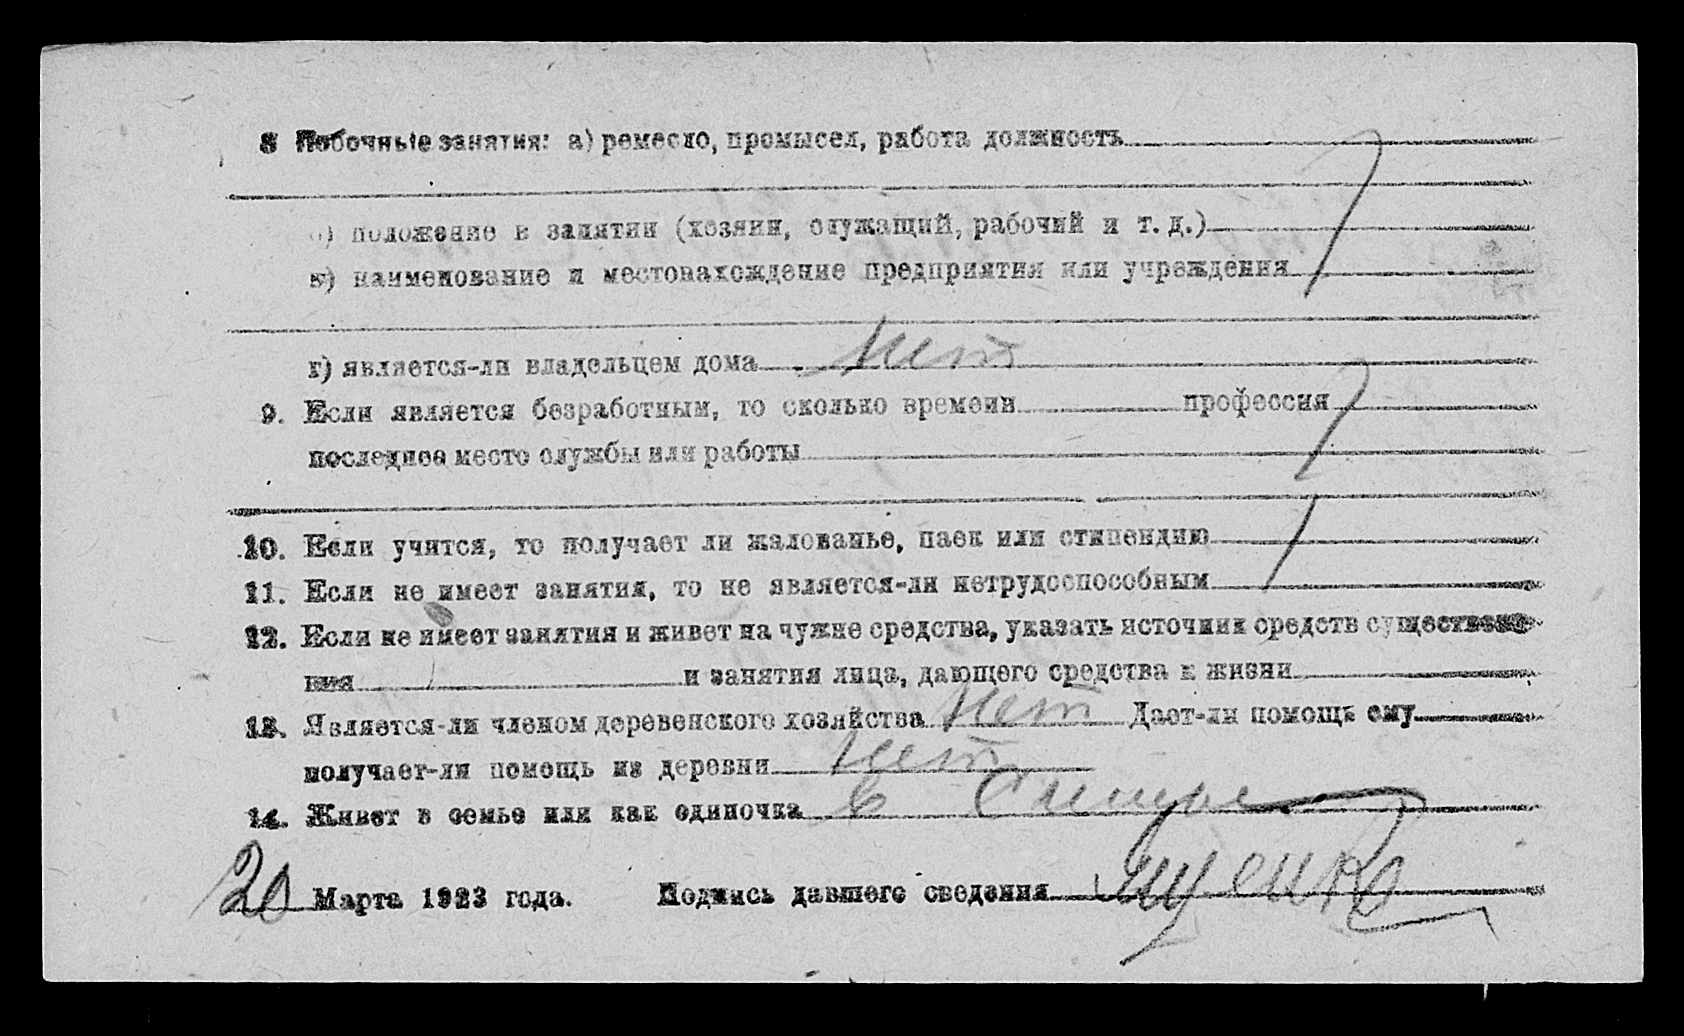 8 Побочные занятия: а) ремесло, промысел, работа должность
б) положение в занятии (хозяин, служащий, рабочий и т. д.)
в) наименование и местонахождение предприятия или учреждения
г) является-ли владельцем дома Нет
9. Если является безработным, то сколько времени профессия
последнее место службы или работы
10. Если учится, то получает ли жалованье, паек или стипендию
11. Если не имеет занятия, то не является-ли нетрудоспособным
12. Если не имеет занятия и живет на чужие средства, указать источник средств существова-
ния и занятия лица, дающего средства к жизни
13. Является-ли членом деревенского хозяйства Нет Дает-ли помощь ему
получает-ли помощь из деревни Нет
14. Живет в семье или как одиночка С
20 Марта 1923 года. Подпись давшего сведения